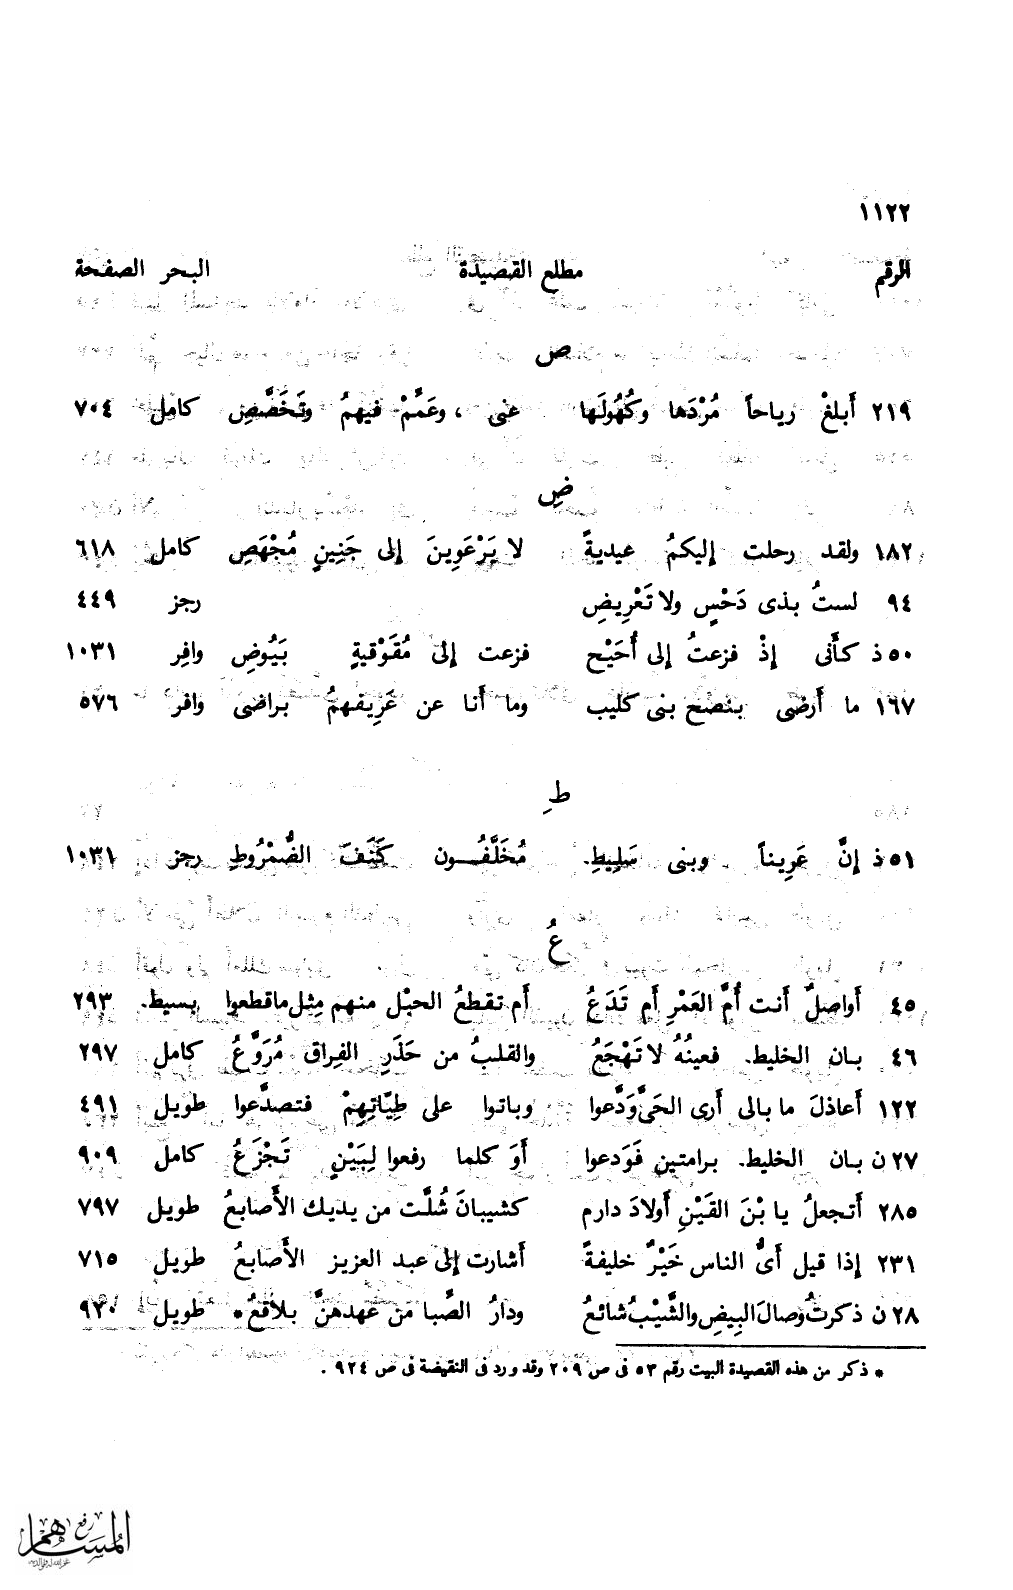 ١١٢٢
الرقم مطلع القصيدة البحر الصفحة
صِ
٢١٩ أَبلغْ رياحاً مُرْدَها وكُهُولَها عنى ، وعَمِّمْ فيهمُ وتَخَصَّصِ كامل ٧٠٤
ضِ
١٨٢ ولقد رحلت إليكمُ عيديةً لا يَرْعَوِينَ إلى جَنِينٍ مُجْهَضِ كامل ٦١٨
٩٤ لستُ بذى دَحْسٍ ولا تَعْرِيضِ رجز ٤٤٩
٥٠ ذ كأَنى إذْ فزعتُ إلى أُحَيْح فزعت إلى مُقَوْقيةٍ بَيُوضِ وافِر ١٠٣١
١٦٧ ما أَرضى بنصْح بنى كليب وما أَنا عن عَرِيفهمُ براضى وافر ٥٧٦
طِ
٥١ ذ إنَّ عَرِيناً وبنى سَلِيطِ. مُخَلَّفُـــون كَنَفَ الضُّمْرُوطِ رجز ١٠٣١
عُ
٤٥ أَواصلٌ أَنت أُمَّ العَمْرِ أَم تَدَعُ أَم تقطعُ الحبْل منهم مِثل ما قطعوا بسيط. ٢٩٣
٤٦ بان الخليط. فعينُهُ لا تَهْجَعُ والقلبُ من حَذَرِ الفِراق مُرَوَّعُ كامل ٢٩٧
١٢٢ أَعاذلَ ما بالى أَرى الحَىَّ وَدَّعوا وباتوا على طِيّاتِهِمْ فتصدَّعوا طويل ٤٩١
٢٧ ن بان الخليط. برامتين فَوَدعوا أَوَ كلما رفعوا لِبَيْنٍ تَجْزَعُ كامل ٩٠٩
٢٨٥ أَتجعلُ يا بْنَ القَيْنِ أَولادَ دارم كشيبانَ شُلَّت من يديك الأَصابعُ طويل ٧٩٧
٢٣١ إذا قيل أَىُّ الناس خَيْرٌ خليفةً أَشارت إلى عبد العزيز الأَصابعُ طويل ٧١٥
٢٨ ن ذكرتُ وصالَ البِيضِ والشَّيْبُ شائعُ ودارُ الصِّبا من عهدهنَّ بلاقعُ * طويل ٩٢٠
* ذكر من هذه القصيدة البيت رقم ٥٣ فى ص ٢٠٩ وقد ورد فى النقيضة فى ص ٩٢٤ .
رفع
المساهم